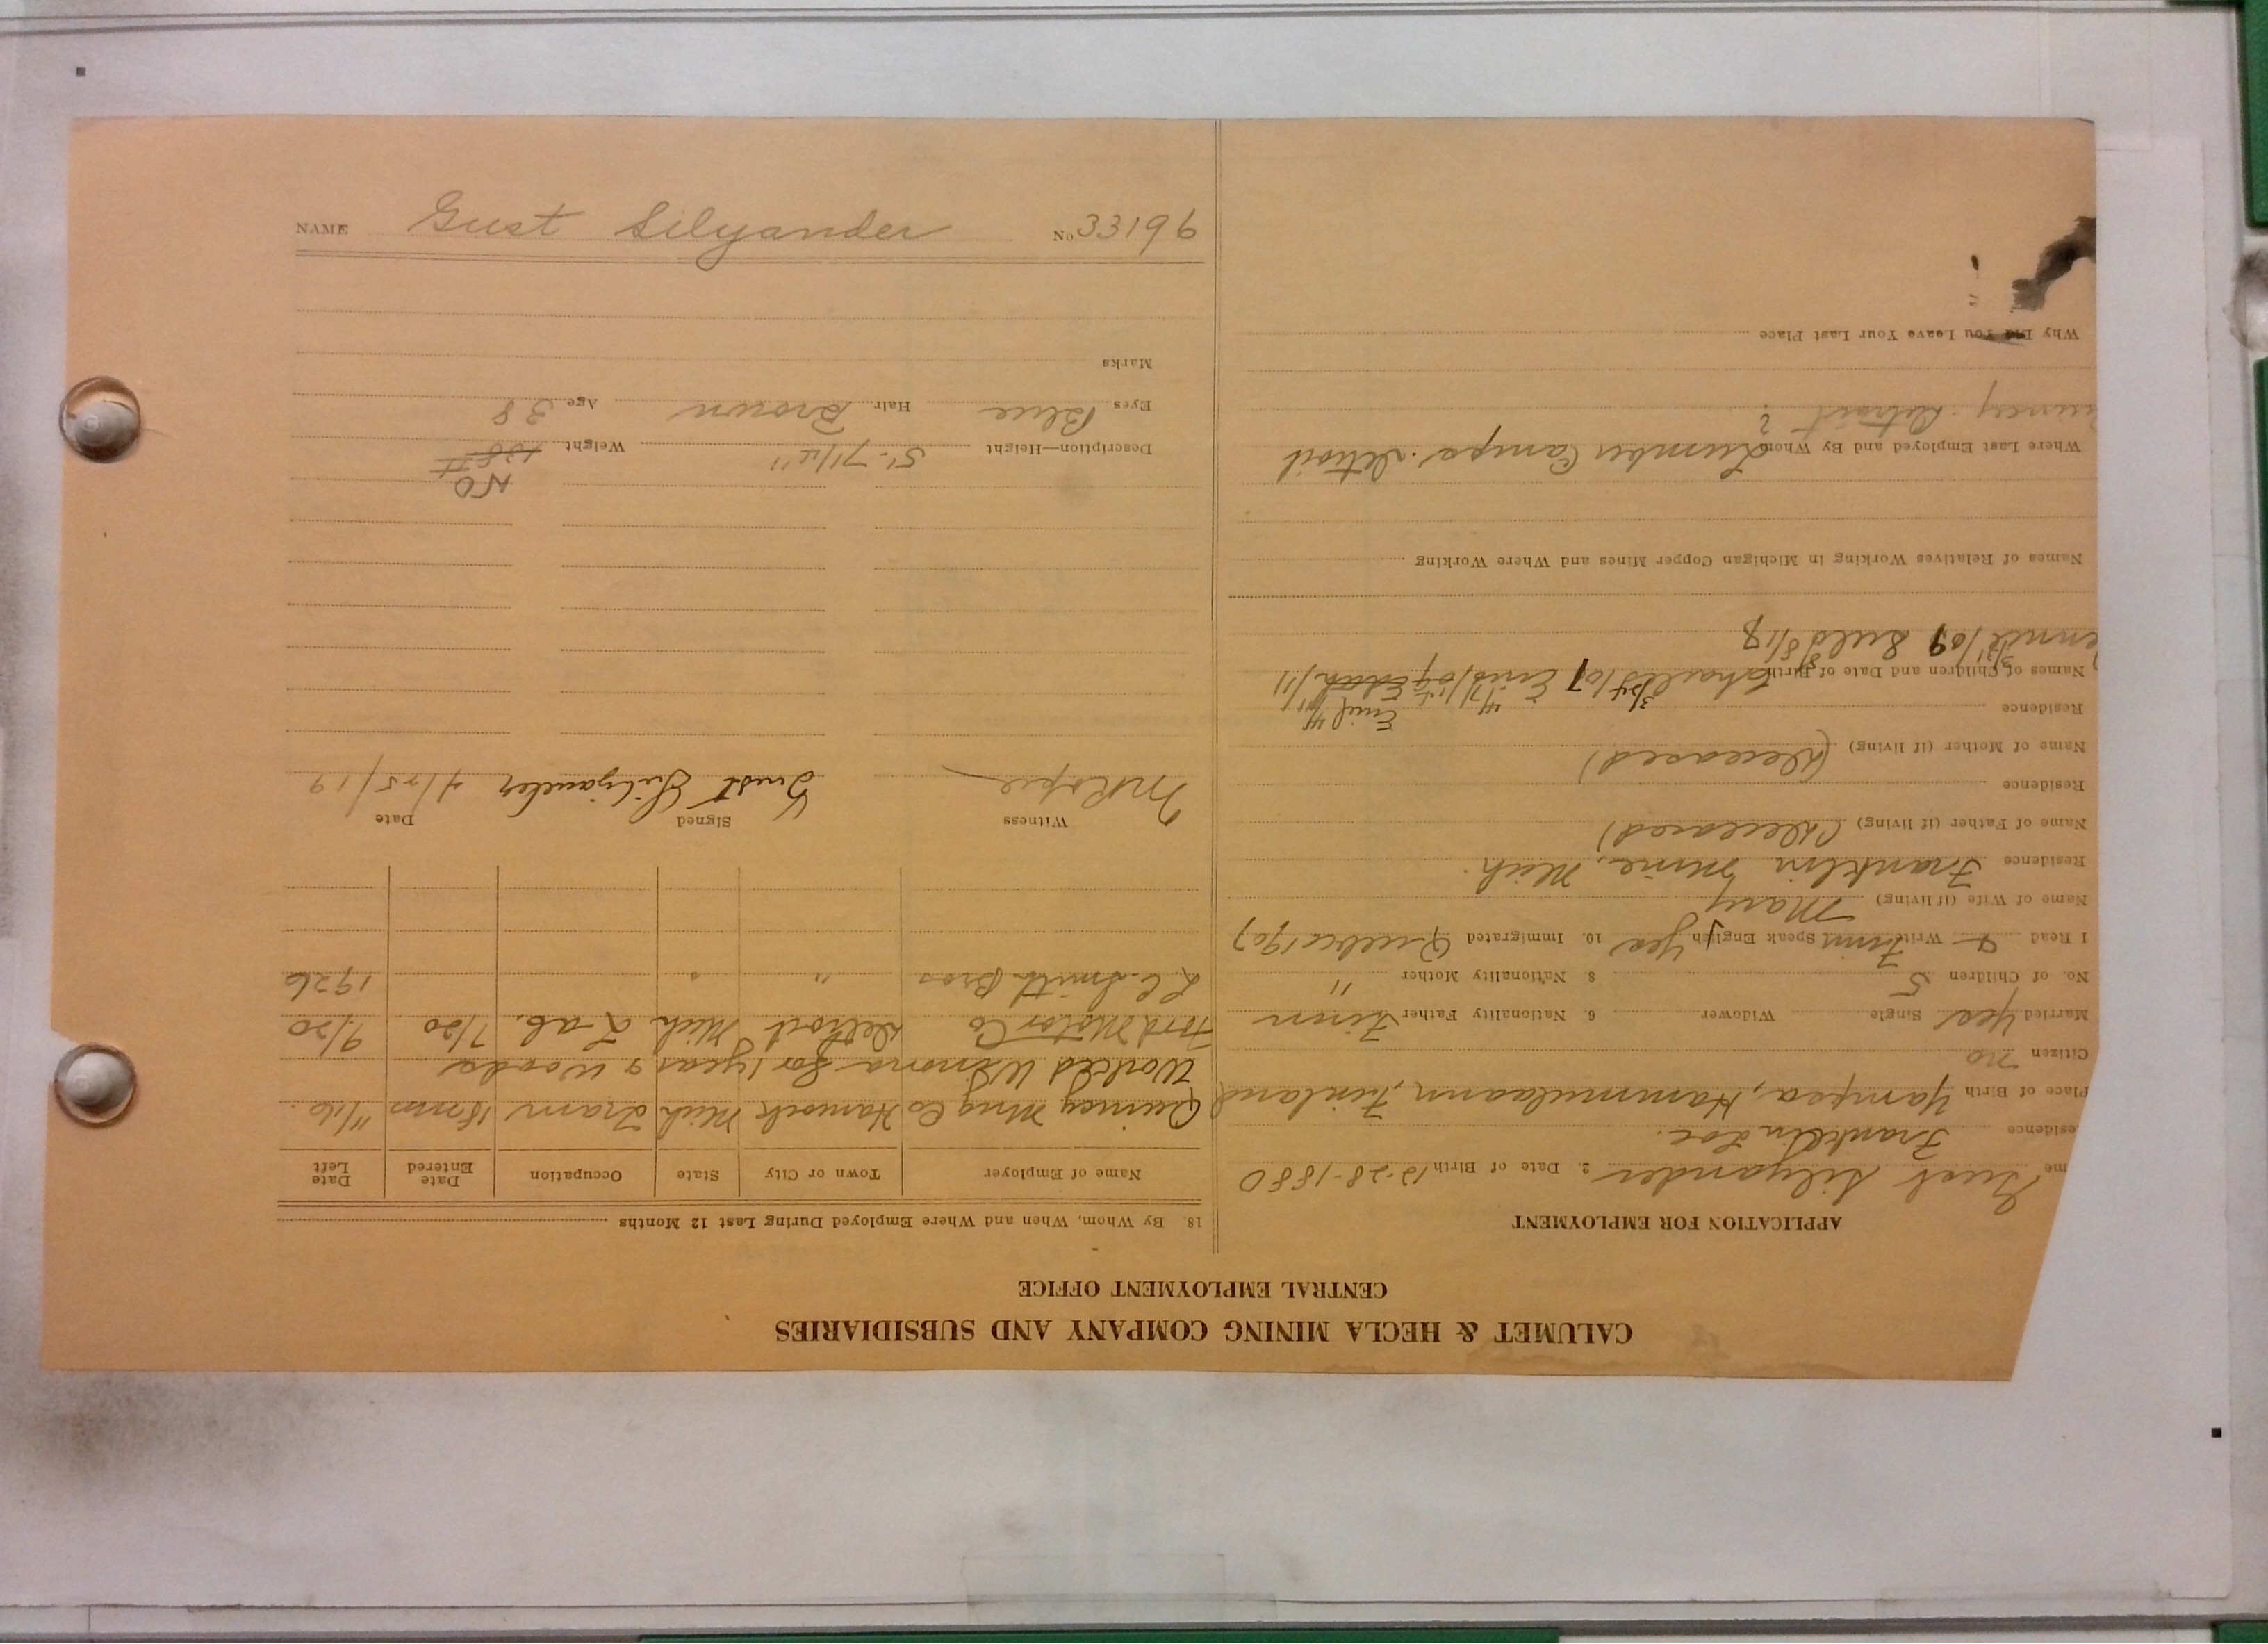 NAME Gust Silyander No 33196
CALUMET & HECLA MINING COMPANY AND SUBSIDIARIES
CENTRAL EMPLOYMENT OFFICE
APPLICATION FOR EMPLOYMENT
me Gust Silyander 2. Date of Birth 12-28-1880
esidence Franklin Loc.
Place of Birth Finland
Citizen no
Married Yes Single Widower 6. Nationality Father Finn
No. of Children 5 8. Nationality Mother "
I Read Write Finn Speak English Yes 10. Immigrated Quebec 1907
Name of Wife (if living) Mary
Residence Franklin Mine, Mich.
Name of Father (if living) (Deceased)
Residence
Name of Mother (if living) (Deceased)
Residence
Names of Children and Date of Birth Charles
Names of Relatives Working in Michigan Copper Mines and Where Working
Where Last Employed and By Whom Lumber Camps. Detroit
?
Why Did You Leave Your Last Place
18. By Whom, When and Where Employed During Last 12 Months
Name of Employer Town or City State Occupation Date Entered Date Left
Quincy Mng Co Hancock Mich Tram 18 mos 11/16.
Worked Winona for 1 year & woods
Ford Motor Co Detroit Mich Lab. 7/20 9/20
Smith Bros " " 1926
Witness Signed Date
Gust Siljander 4/25/19
Description—Height 5'-7 1/4" Weight 138 #
NO
Eyes Blue Hair Brown Age 38
Marks